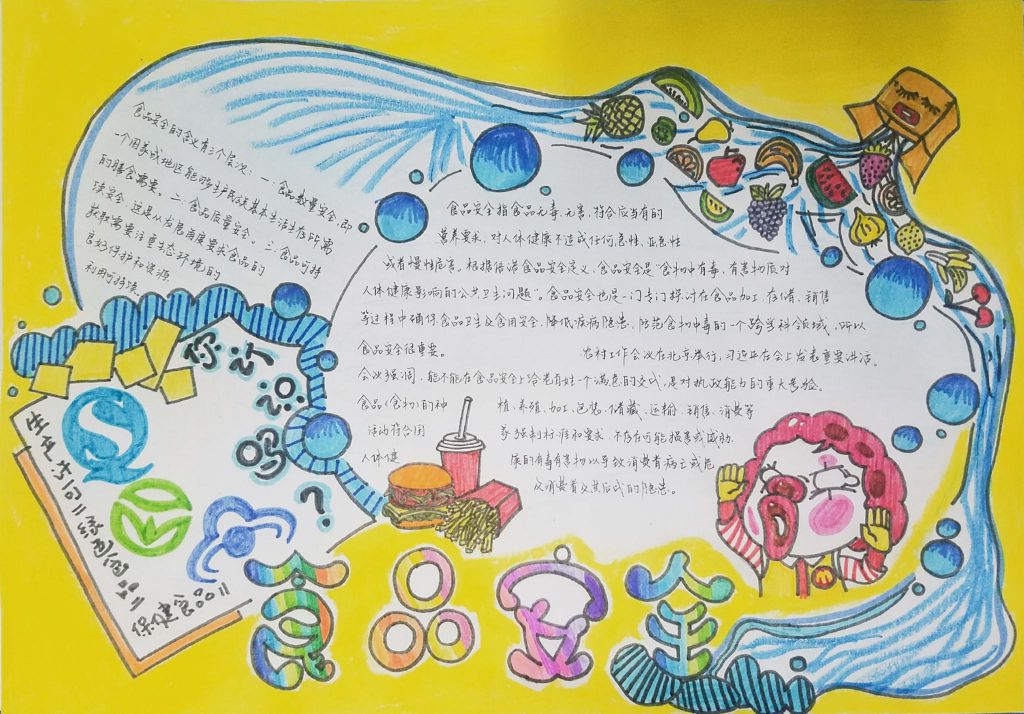 食品安全的含义有三个层次：一：食品数量安全，即
一个国家或地区能够生产民族基本生活生存所需
的膳食需要。二：食品质量安全。三：食品可持
续安全，这是从发展角度要求食品的
获取需要注重生态环境的
良好保护和资源
利用可持续。
食品安全指食品无毒、无害，符合应当有的
营养要求，对人体健康不造成任何急性、亚急性
或者慢性危害。根据倍诺食品安全定义，食品安全是“食物中有毒、有害物质对
人体健康影响的公共卫生问题”。食品安全也是一门专门探讨在食品加工、存储、销售
等过程中确保食品卫生及食用安全，降低疾病隐患，防范食物中毒的一个跨学科领域，所以
食品安全很重要。
农村工作会议在北京举行，习近平在会上发表重要讲话。
会议强调，能不能在食品安全上给老百姓一个满意的交代，是对执政能力的重大考验。
食品(食物)的种植、养殖、加工、包装、储藏、运输、销售、消费等
活动符合国家强制标准和要求，不存在可能损害或威胁
人体健康的有毒有害物以导致消费者病亡或危
及消费者及其后代的隐患。
你认识吗？
生产许可！！
绿色食品！！
保健食品！！
食品安全